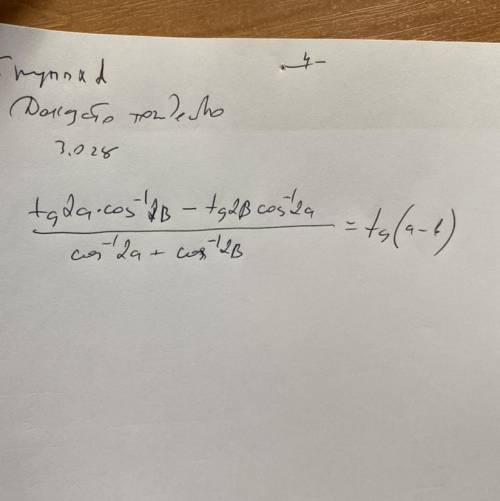 Группа А
–4–
Доказать тождество
3.028
(tg2a·cos⁻¹2B − tg2B cos⁻¹2a) / (cos⁻¹2a + cos⁻¹2B) = tg(a−b)